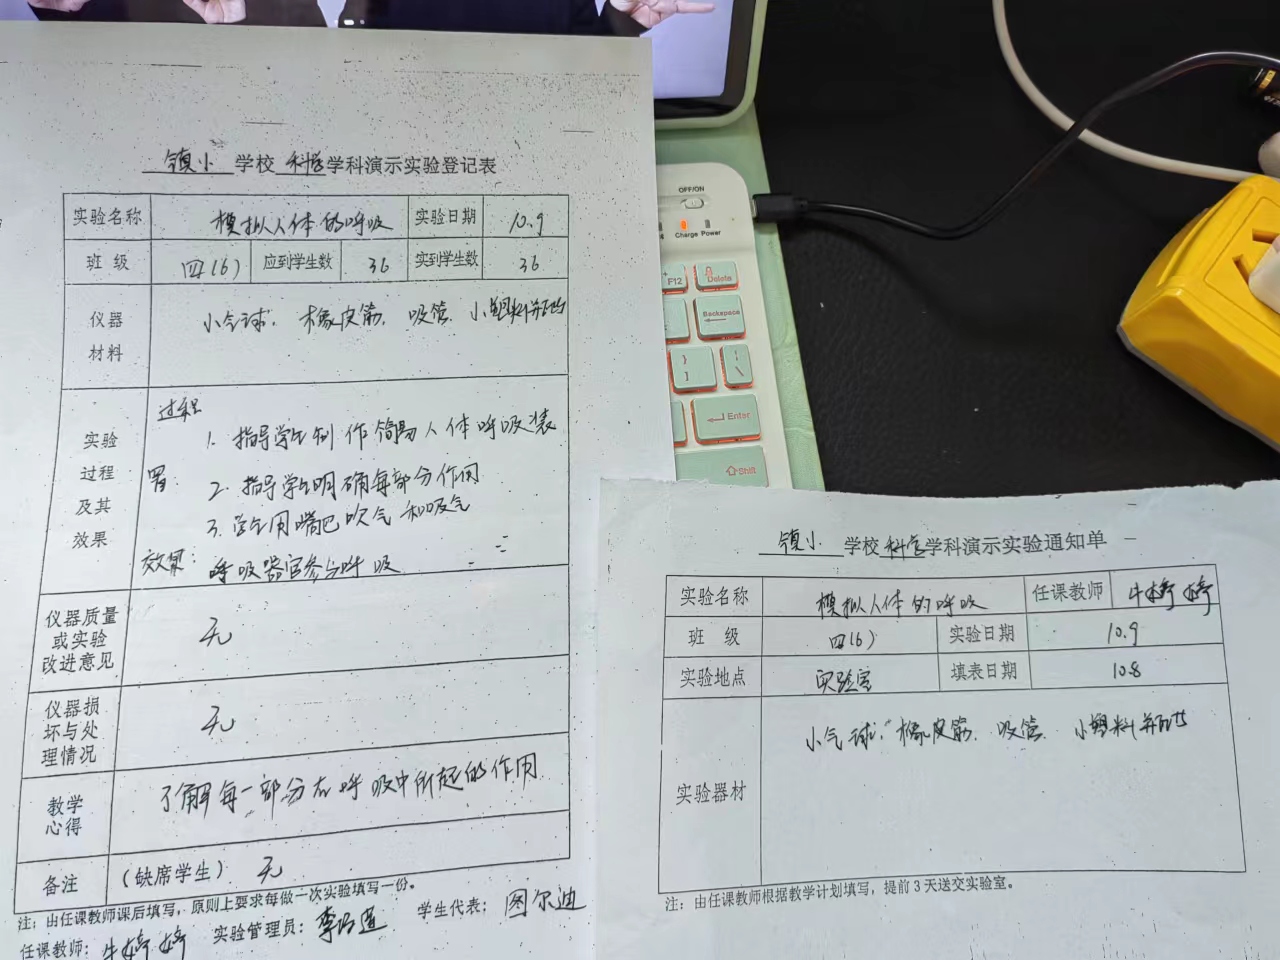 镇小 学校 科学 学科演示实验登记表
实验名称 模拟人体的呼吸 实验日期 10.9
班 级 四(6) 应到学生数 36 实到学生数 36
仪器材料 小气球、橡皮筋、吸管、小塑料瓶
实验过程及其效果
过程
1. 指导学生制作简易人体呼吸装
置.
2. 指导学生明确每部分作用
3. 学生用嘴巴吹气和吸气
效果: 呼吸器官参与呼吸
仪器质量或实验改进意见 无
仪器损坏与处理情况 无
教学心得 了解每一部分在呼吸中所起的作用
备注 (缺席学生) 无
注: 由任课教师课后填写, 原则上要求每做一次实验填写一份。
任课教师: 牛婷婷 实验管理员: 学生代表: 图尔迪
OFF/ON
Charge Power
F12 Delete
Backspace
} ]
| \
Enter
Shift
镇小 学校 科学 学科演示实验通知单
实验名称 模拟人体的呼吸 任课教师 牛婷婷
班 级 四(6) 实验日期 10.9
实验地点 实验室 填表日期 10.8
实验器材 小气球、橡皮筋、吸管、小塑料瓶
注: 由任课教师根据教学计划填写, 提前3天送交实验室。